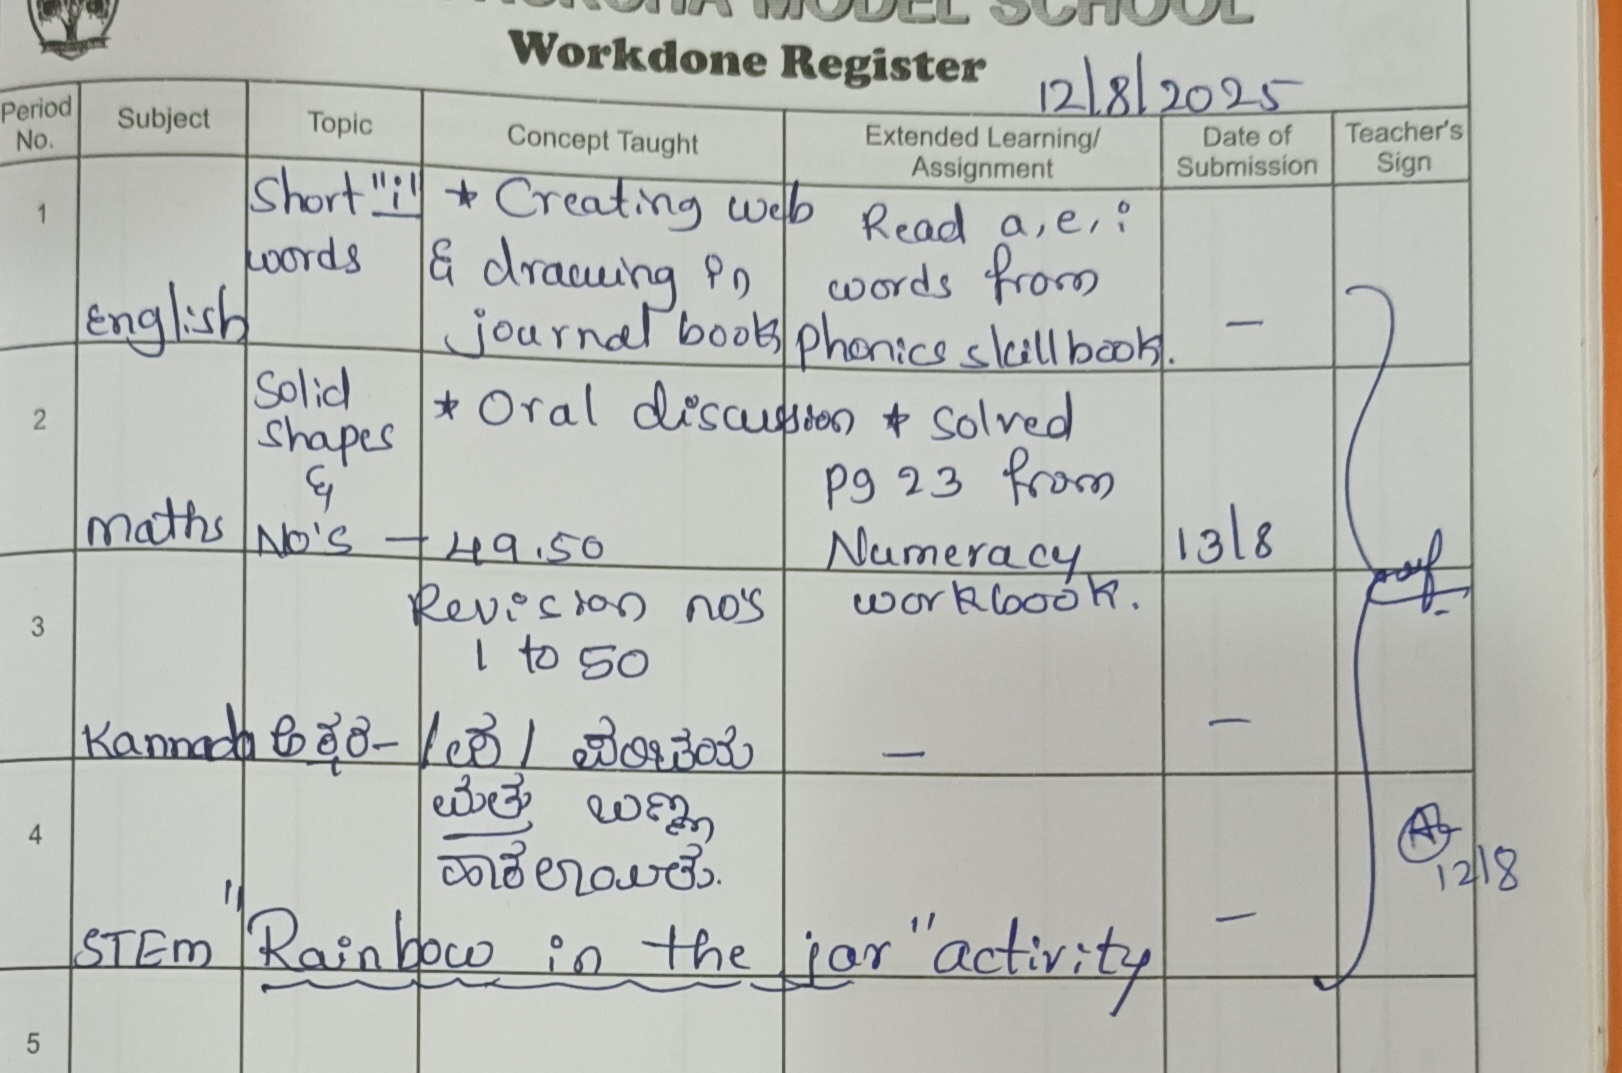 MODEL SCHOOL
Workdone Register
12/8/2025
Period No. Subject Topic Concept Taught Extended Learning/ Assignment Date of Submission Teacher's Sign
1 English Short "i" words * Creating web & drawing in journal book Read a, e, i words from Phonics skill book. –
2 Maths Solid Shapes & No's – 49.50 * Oral discussion * Solved Pg 23 from Numeracy workbook. 13/8
Revision no's
1 to 50
3 Kannada ಅಕ್ಷರ – – –
ಮತ್ತು ಬಣ್ಣ
4 STEM "Rainbow in the jar" activity –
12/8
5